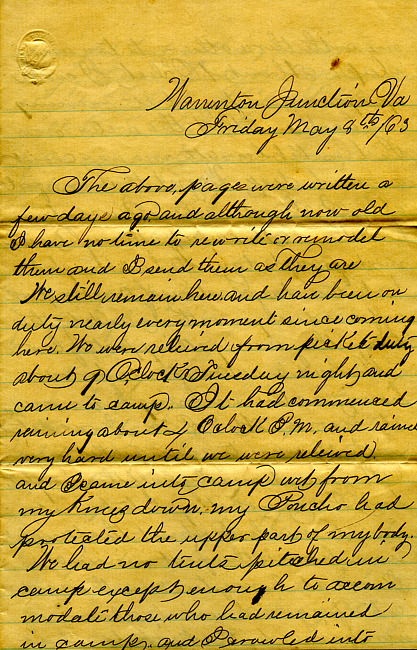 Warrenton Junction Va
Friday May 8th /63
The above pages were written a
few days ago and although now old
I have no time to rewrite or remodel
them and I send them as they are
We still remain here and have been on
duty nearly every moment since coming
here. We were relieved from picket duty
about 9 Oclock Tuesday night and
came to camp. It had commenced
raining about 4 Oclock P.M. and rained
very hard until we were relieved
and I came into camp wet from
my knees down, my Poncho had
protected the upper part of my body.
We had no tents pitched in
camp except enough to accom
modate those who had remained
in camp. and I crawled into